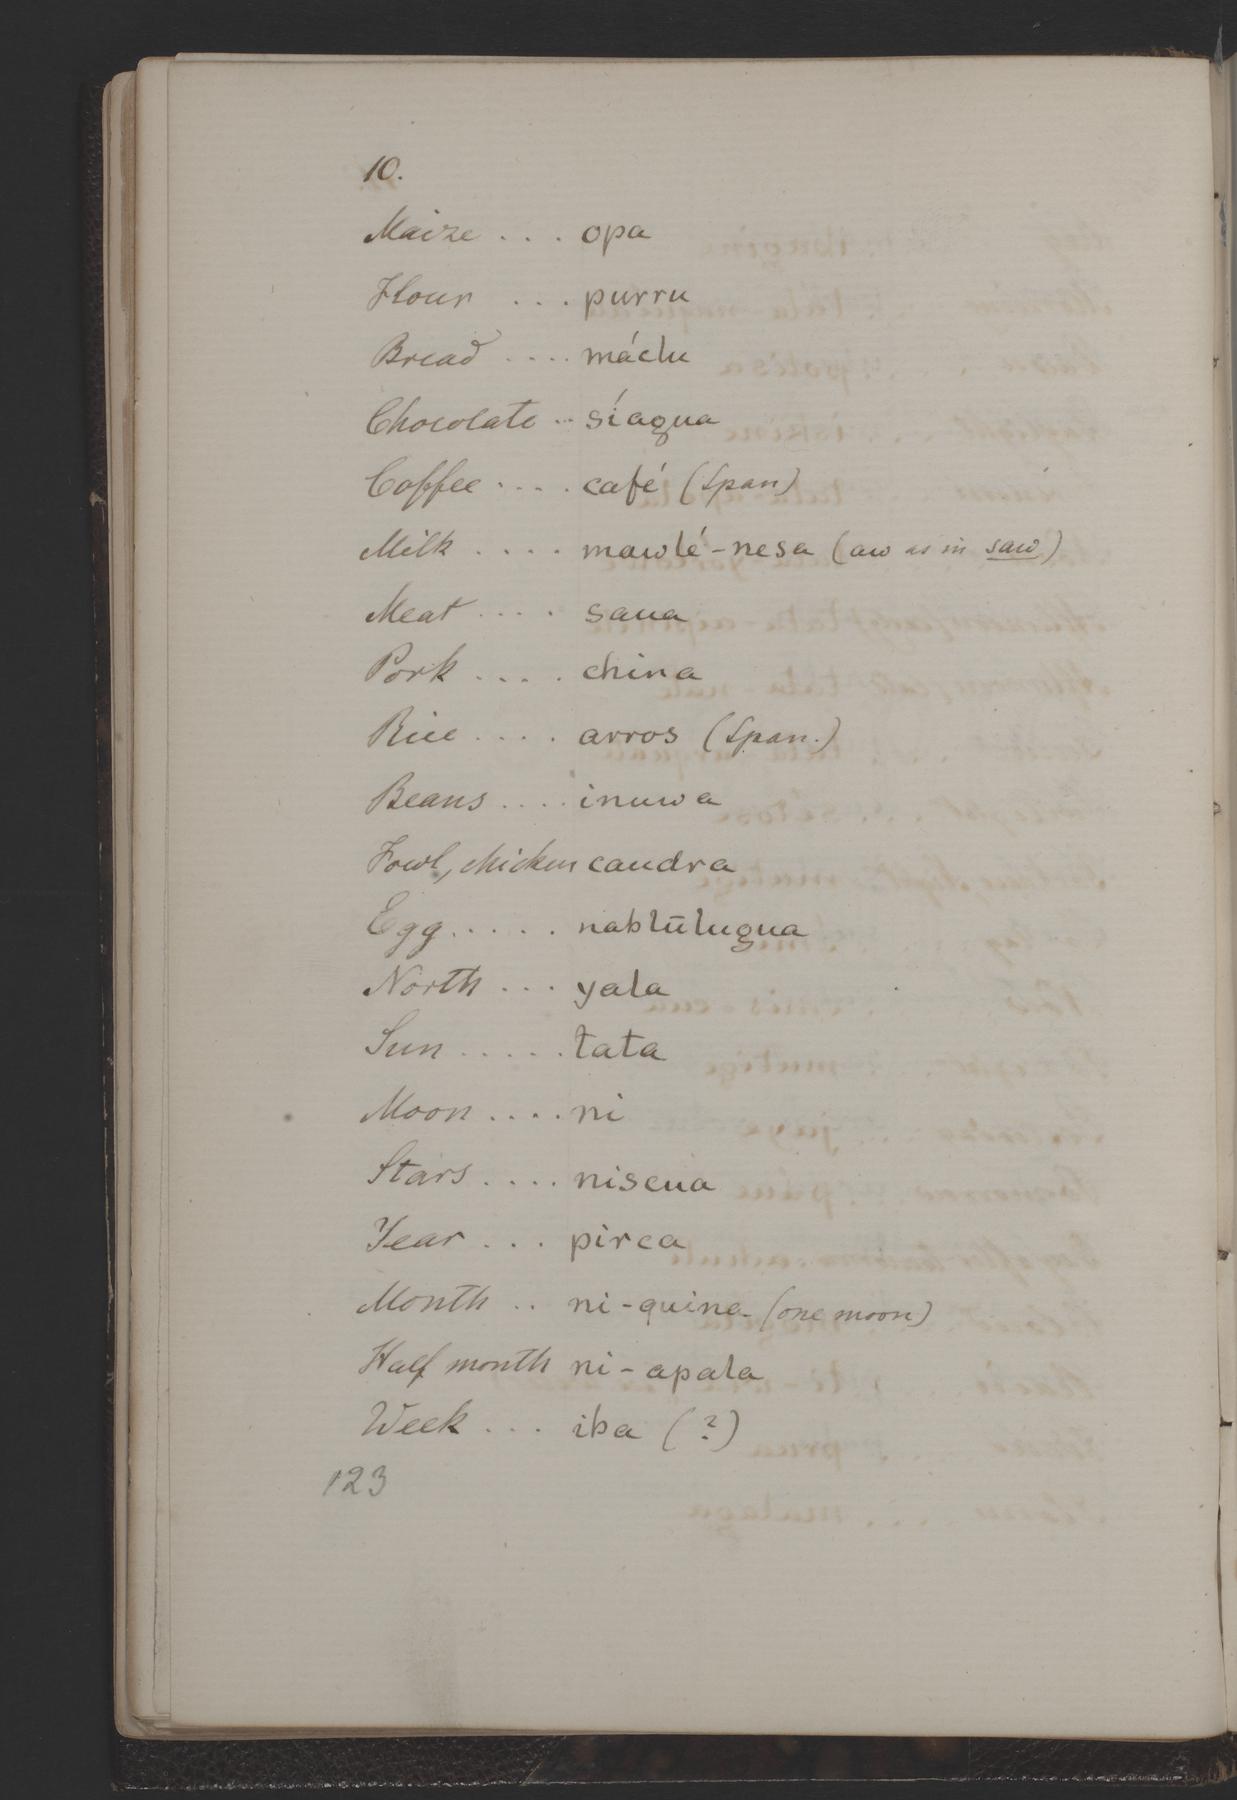 10.
Maize . . . opa
Flour . . . purru
Bread . . . . máclu
Chocolate .. síagua
Coffee . . . . café (Span)
Milk . . . . mawlé-nesa (aw as in saw)
Meat . . . . sana
Pork . . . . china
Rice . . . . arros (Span.)
Beans . . . . inuwa
Fowl, chicken candra
Egg . . . . . nablūlugua
North . . . yala
Sun . . . . . tata
Moon . . . . ni
Stars . . . . niscua
Year . . . pirca
Month . . ni-quina (one moon)
Half month ni-apala
Week . . . iba (?)
123